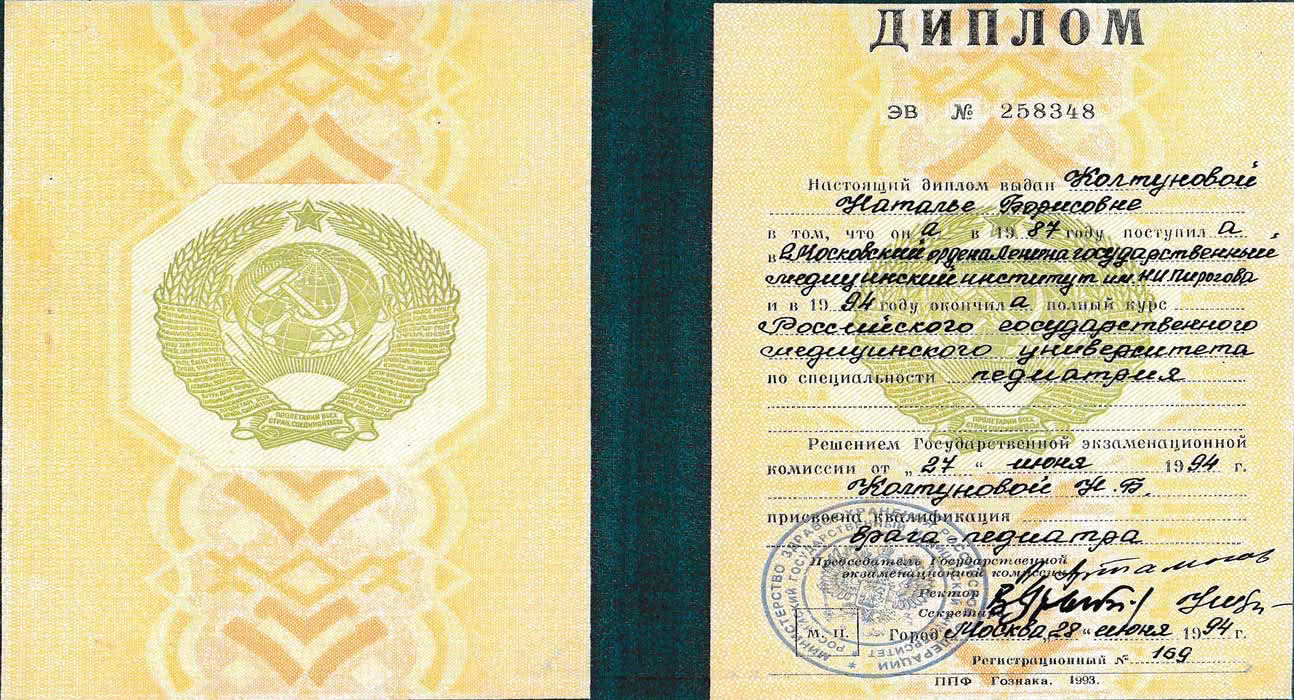 ПРОЛЕТАРИИ ВСЕХ
СТРАН, СОЕДИНЯЙТЕСЬ!
ДИПЛОМ
ЭВ № 258348
Настоящий диплом выдан Колтуновой
Наталье Борисовне
в том, что он а в 19 87 году поступил а
в 2 Московский ордена Ленина государственный
медицинский институт им. Н.И. Пирогова
и в 19 94 году окончил а полный курс
Российского государственного
медицинского университета
по специальности педиатрия
Решением Государственной экзаменационной
комиссии от „ 27 “ июня 19 94 г.
Колтуновой Н.Б.
присвоена квалификация
врача педиатра
Председатель Государственной
экзаменационной комиссии
Ректор
Секретарь
М. П. Город Москва „ 28 “ июня 19 94 г.
Регистрационный № 169
ППФ Гознака. 1993.